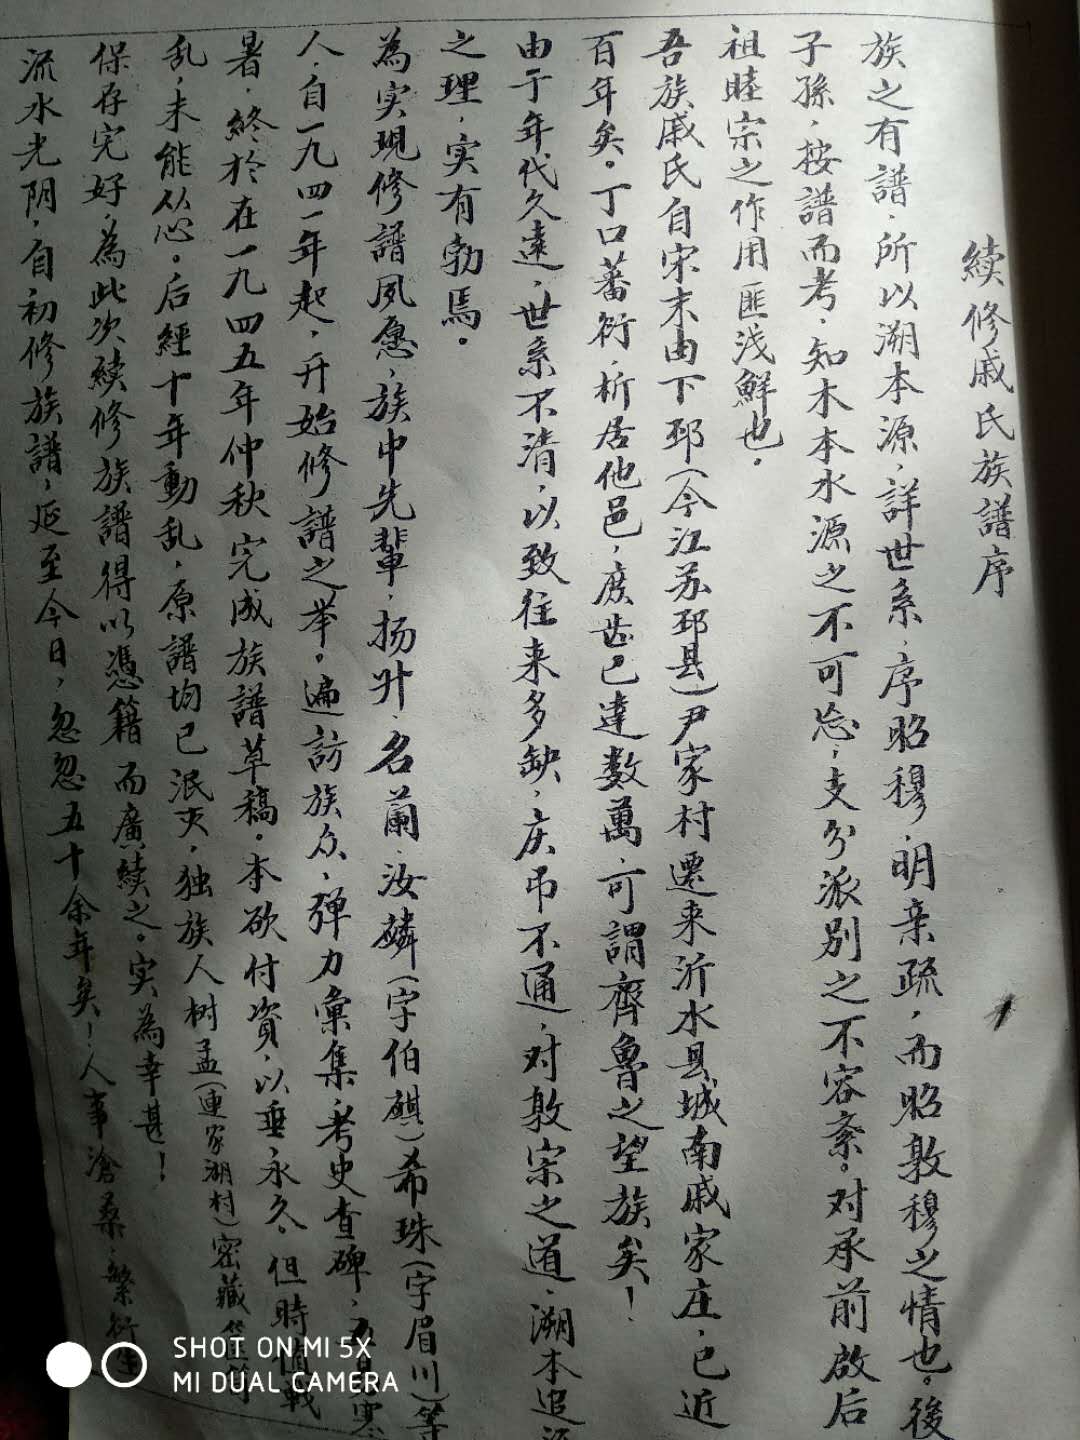 續修戚氏族譜序
族之有譜，所以溯本源，詳世系，序昭穆，明亲疏，而昭敦穆之情也。後
子孫，按譜而考，知木本水源之不可忘，支分派别之不容紊。对承前啟后
祖睦宗之作用匪浅鮮也。
吾族戚氏自宋末由下邳（今江苏邳县）尹家村遷来沂水县城南戚家庄，已近
百年矣。丁口蕃衍，析居他邑，庹齿已達數萬，可謂齊魯之望族矣！
由于年代久遠，世系不清，以致往来多缺，庆吊不通，对敦宗之道，溯本追
之理，实有勃焉。
為实現修譜夙愿，族中先輩，扬升、名蘭、汝麟（字伯麒）希珠（字眉川）等
人，自一九四一年起，开始修譜之举。遍訪族众，弹力彙集，考史查碑，寒
暑，終於在一九四五年仲秋完成族譜草稿。本欲付資，以垂永久，但時值戰
乱，未能从心。后經十年動乱，原譜均已泯灭，独族人树孟（連家湖村）密藏
保存完好，為此次續修族譜得以憑籍而廣續之。实為幸甚！
流水光阴，自初修族譜，延至今日，忽忽五十余年矣！人事滄桑，繁衍
SHOT ON MI 5X
MI DUAL CAMERA